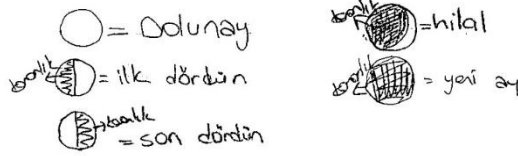 = Dolunay
karanlık = ilk dördün
karanlık = son dördün
karanlık = hilal
karanlık = yeni ay